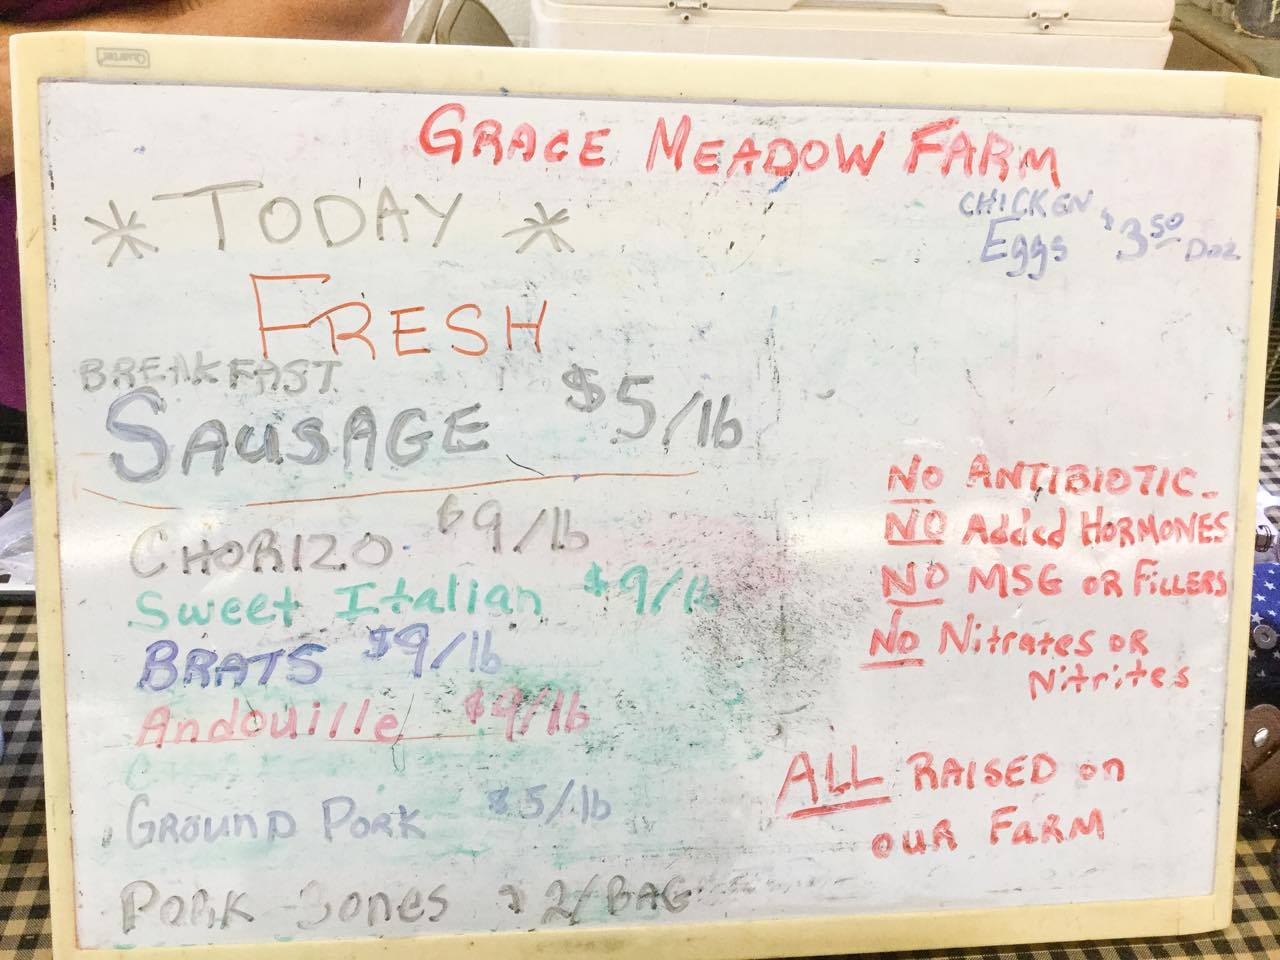 Quartet
GRACE MEADOW FARM
* TODAY *
CHICKEN
Eggs $3.50 Doz
FRESH
BREAKFAST
SAUSAGE $5/lb
CHORIZO $9/lb
Sweet Italian $9/lb
BRATS $9/lb
Andouille $9/lb
GROUND PORK $5/lb
PORK Bones $2/BAG
NO ANTIBIOTIC
NO Added HORMONES
NO MSG OR Fillers
No Nitrates or
Nitrites
ALL RAISED on
our FARM